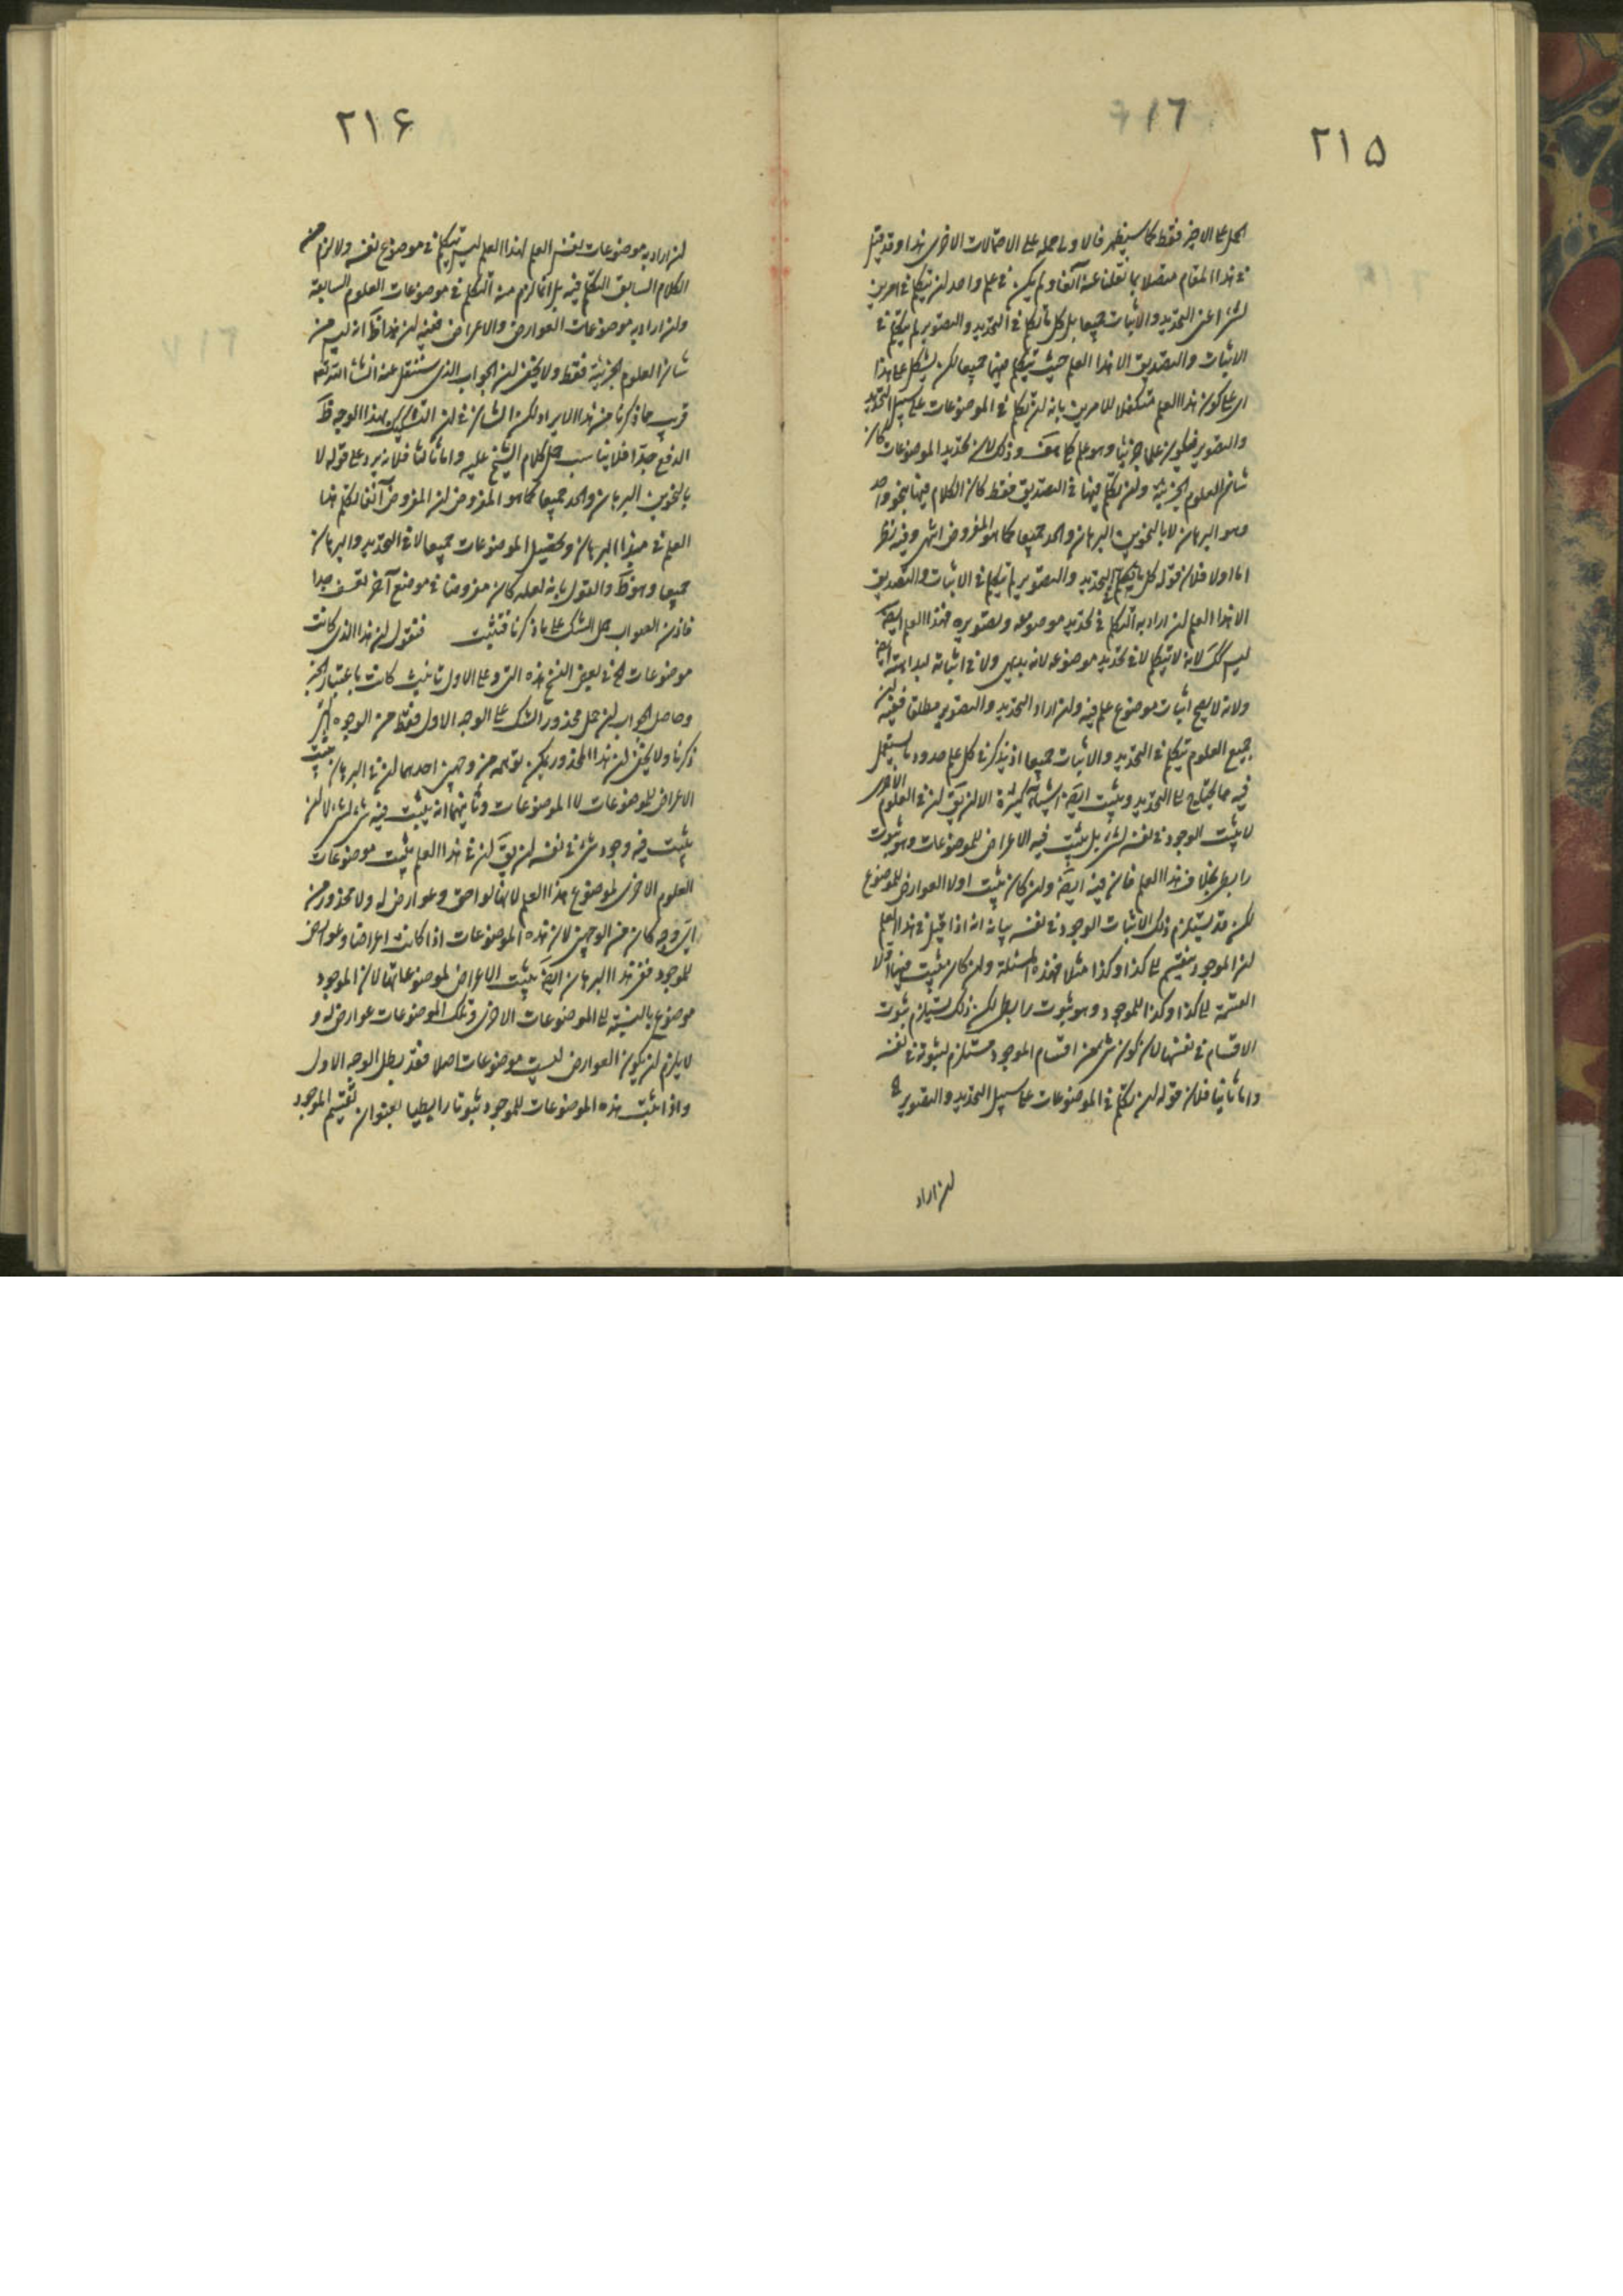 ٢١٥
الحمل على الاخير فقط كما سيظهر فالاولى حمله على الاحتمالات الاخرى هذا وقد قيل
في هذا المقام متصلا بما نقلنا عنه آنفا ولم يكن في علم واحد ان يتكلم في امرين
اعنى التحديد والاثبات جميعا بل كل ما تكلم في التحديد والتصوير لم يتكلم في
الاثبات والتصديق الا هذا العلم حيث يتكلم فيهما جميعا لكن يشكل على هذا
اى على كون هذا العلم متكفلا للامرين بانه ان تكلم في الموضوعات على سبيل التحديد
والتصوير فيكون علما جزئيا وهو علم كلى هف وذلك لان تحديد الموضوعات كان
شان العلوم الجزئية وان تكلم فيها في التصديق فقط كان الكلام فيها بنحو واحد
وهو البرهان لا بالنحوين البرهان والحد جميعا كما هو المفروض انتهى وفيه نظر
اما اولا فلان قوله كل ما تكلم في التحديد والتصوير لم يتكلم في الاثبات والتصديق
الا هذا العلم ان اراد به التكلم في تحديد موضوعه وتصويره فهذا العلم ايضا
ليس كك لانه لا يتكلم لا في تحديد موضوعه لانه بديهى ولا في اثباته لبداهته ايضا
ولانه لا يصح اثبات موضوع علم فيه وان اراد التحديد والتصوير مطلقا ففيه ان
جميع العلوم يتكلم في التحديد والاثبات جميعا اذ يذكر في كل علم حدود ما يستعمل
فيه مما يحتاج الى التحديد ويثبت ايضا اشياء كثيرة الا ان يق ان في العلوم الاخرى
لا يثبت الوجود في نفسه لشئ بل يثبت فيه الاعراض للموضوعات وهو ثبوت
رابطى بخلاف هذا العلم فان فيه ايضا وان كان يثبت اولا العوارض للموضوع
لكن قد يستلزم ذلك الاثبات الوجود في نفسه بيانه انه اذا قيل في هذا العلم
ان الموجود ينقسم الى كذا وكذا مثلا فهذه المسئلة وان كان يثبت فيها اولا
القسمة الى كذا وكذا للموجود وهو ثبوت رابطى لكن ذلك يستلزم ثبوت
الاقسام في نفسها لان كون شئ من اقسام الموجود مستلزم لثبوته في نفسه
واما ثانيا فلان قوله ان تكلم في الموضوعات على سبيل التحديد والتصوير
ان اراد
٢١۶
ان اراد به موضوعات نفس العلم فهذا العلم ليس يتكلم في موضوع نفسه ولا لزم من
الكلام السابق التكلم فيه بل انما لزم منه التكلم في موضوعات العلوم السابقة
وان اراد به موضوعات العوارض والاعراض ففيه ان هذا ظ انه ليس من
شان العلوم الجزئية فقط ولا يخفى ان الجواب الذى سننقل عنه انشاء الله تعه
قريب مما ذكرنا من هذا الايراد لكن الشان في ان التشكيك بهذا الوجه ظ
الدفع جدا فلا يناسب حمل كلام الشيخ عليه واما ثالثا فلانه يرد على قوله لا
بالنحوين البرهان والحد جميعا كما هو المفروض ان المفروض آنفا تكلم هذا
العلم في مبدأ البرهان وتحصيل الموضوعات جميعا لا في التحديد والبرهان
جميعا وهو ظ والقول بانه لعله كان مفروضا في موضع آخر تعسف جدا
فاذن الصواب حمل الشك على ما ذكرنا فتثبت فنقول ان هذا الذى كانت
موضوعات الخ في بعض النسخ هذه التى وعلى الاول تانيث كانت باعتبار الخبر
وحاصل الجواب ان حمل محذور الشك على الوجه الاول فقط من الوجوه التى
ذكرنا ولا يخفى ان هذا المحذور يمكن توهمه من وجهين احدهما ان في البرهان يثبت
الاعراض للموضوعات لا الموضوعات وثانيهما انه يثبت فيه شئ لشئ لا ان
يثبت فيه وجود شئ في نفسه ان يق ان في هذا العلم يثبت موضوعات
العلوم الاخرى لموضوع هذا العلم لانها لواحق وعوارض له ولا محذور من
اى وجه كان من الوجهين لان هذه الموضوعات اذا كانت اعراضا وعوارض
للموجود ففى هذا البرهان ايضا يثبت الاعراض لموضوعاتها لان الموجود
موضوع بالنسبة الى الموضوعات الاخرى وتلك الموضوعات عوارض له و
لا يلزم ان يكون العوارض ليست موضوعات اصلا فقد بطل الوجه الاول
واذا يثبت هذه الموضوعات للموجود ثبوتا رابطيا بعنوان تقسيم الموجود